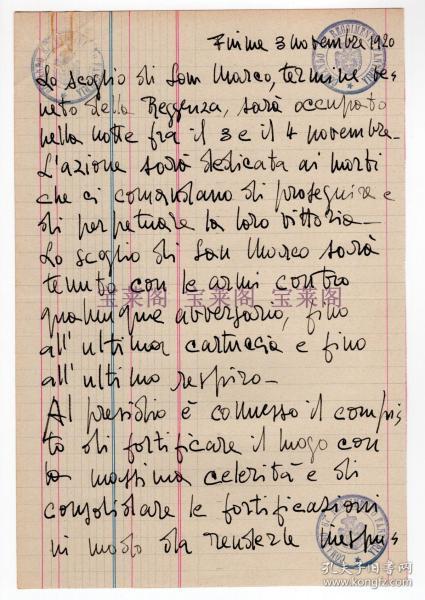 Fiume 3 novembre 1920
Lo scoglio di San Marco, termine ve-
neto della Reggenza, sarà occupato
nella notte fra il 3 e il 4 novembre_
L'azione sarà dedicata ai morti
che ci comandano di proseguire e
di perpetuare la loro vittoria_
Lo scoglio di San Marco sarà
tenuto con le armi contro
qualunque avversario, fino
all'ultima cartuccia e fino
all'ultimo respiro_
Al presidio è commesso il compi
to di fortificare il luogo con
la massima celerità e di
consolidare le fortificazioni
in modo da renderle inespu
宝莱阁 宝莱阁 宝莱阁
孔夫子旧书网
www.kongfz.com